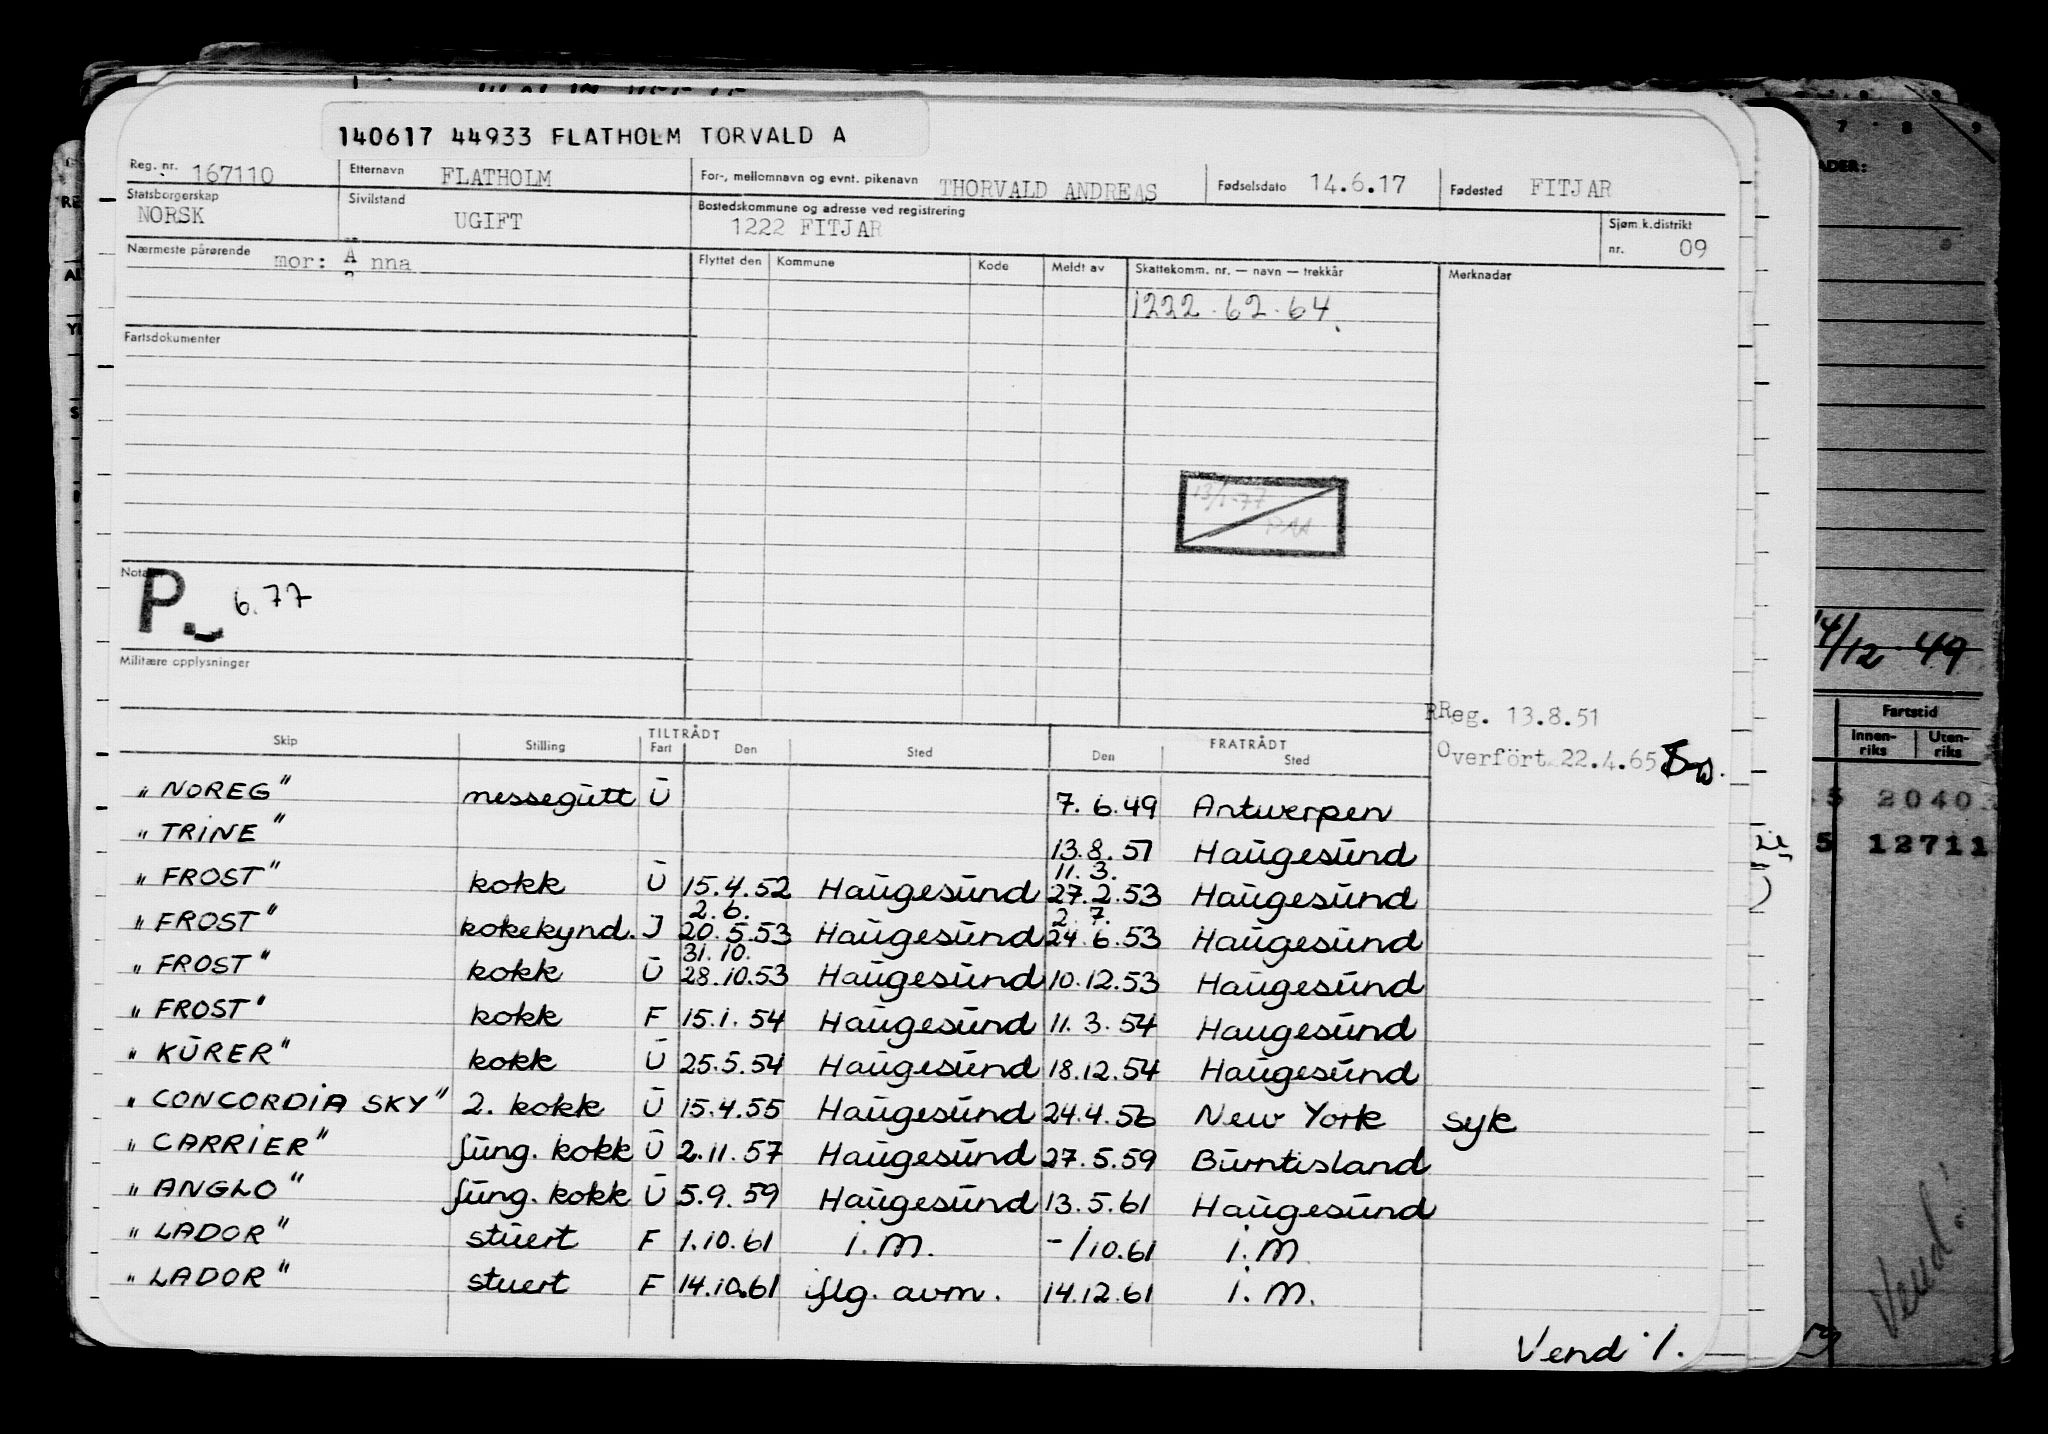 140617 44933 FLATHOLM TORVALD A
Reg. nr. 167110 Etternavn FLATHOLM For-, mellomnavn og evnt. pikenavn THORVALD ANDREAS Fødselsdato 14.6.17 Fødested FITJAR
Statsborgerskap NORSK Sivilstand UGIFT Bostedskommune og adresse ved registrering 1222 FITJAR Sjøm.k.distrikt nr. 09
Nærmeste pårørende mor: Anna Flyttet den Kommune Kode Meldt av Skattekomm. nr. — navn — trekkår Merknadar
1222.62.64.
Fartsdokumenter
13/1-77
Nota P. 6.77
Militære opplysninger
RReg. 13.8.51
Overfört 22.4.65
TILTRÅDT FRATRÅDT
Skip Stilling Fart Den Sted Den Sted
"NOREG" messegutt U 7.6.49 Antwerpen
"TRINE" 13.8.51 Haugesund
11.3.
"FROST" kokk U 15.4.52 Haugesund 27.2.53 Haugesund
2.6. 2.7.
"FROST" kokekynd. J 20.5.53 Haugesund 24.6.53 Haugesund
31.10.
"FROST" kokk U 28.10.53 Haugesund 10.12.53 Haugesund
"FROST" kokk F 15.1.54 Haugesund 11.3.54 Haugesund
"KURER" kokk U 25.5.54 Haugesund 18.12.54 Haugesund
"CONCORDIA SKY" 2. kokk U 15.4.55 Haugesund 24.4.56 New York syk
"CARRIER" fung. kokk U 2.11.57 Haugesund 27.5.59 Burntisland
"ANGLO" fung. kokk U 5.9.59 Haugesund 13.5.61 Haugesund
"LADOR" stuert F 1.10.61 i.m. -/10.61 i.m
"LADOR" stuert F 14.10.61 iflg. avm. 14.12.61 i.m.
Vend ./.
7 8 9
ADER:
14/12 49
Fartstid
Innen-riks Uten-riks
5 2040
5 12711
Vend!